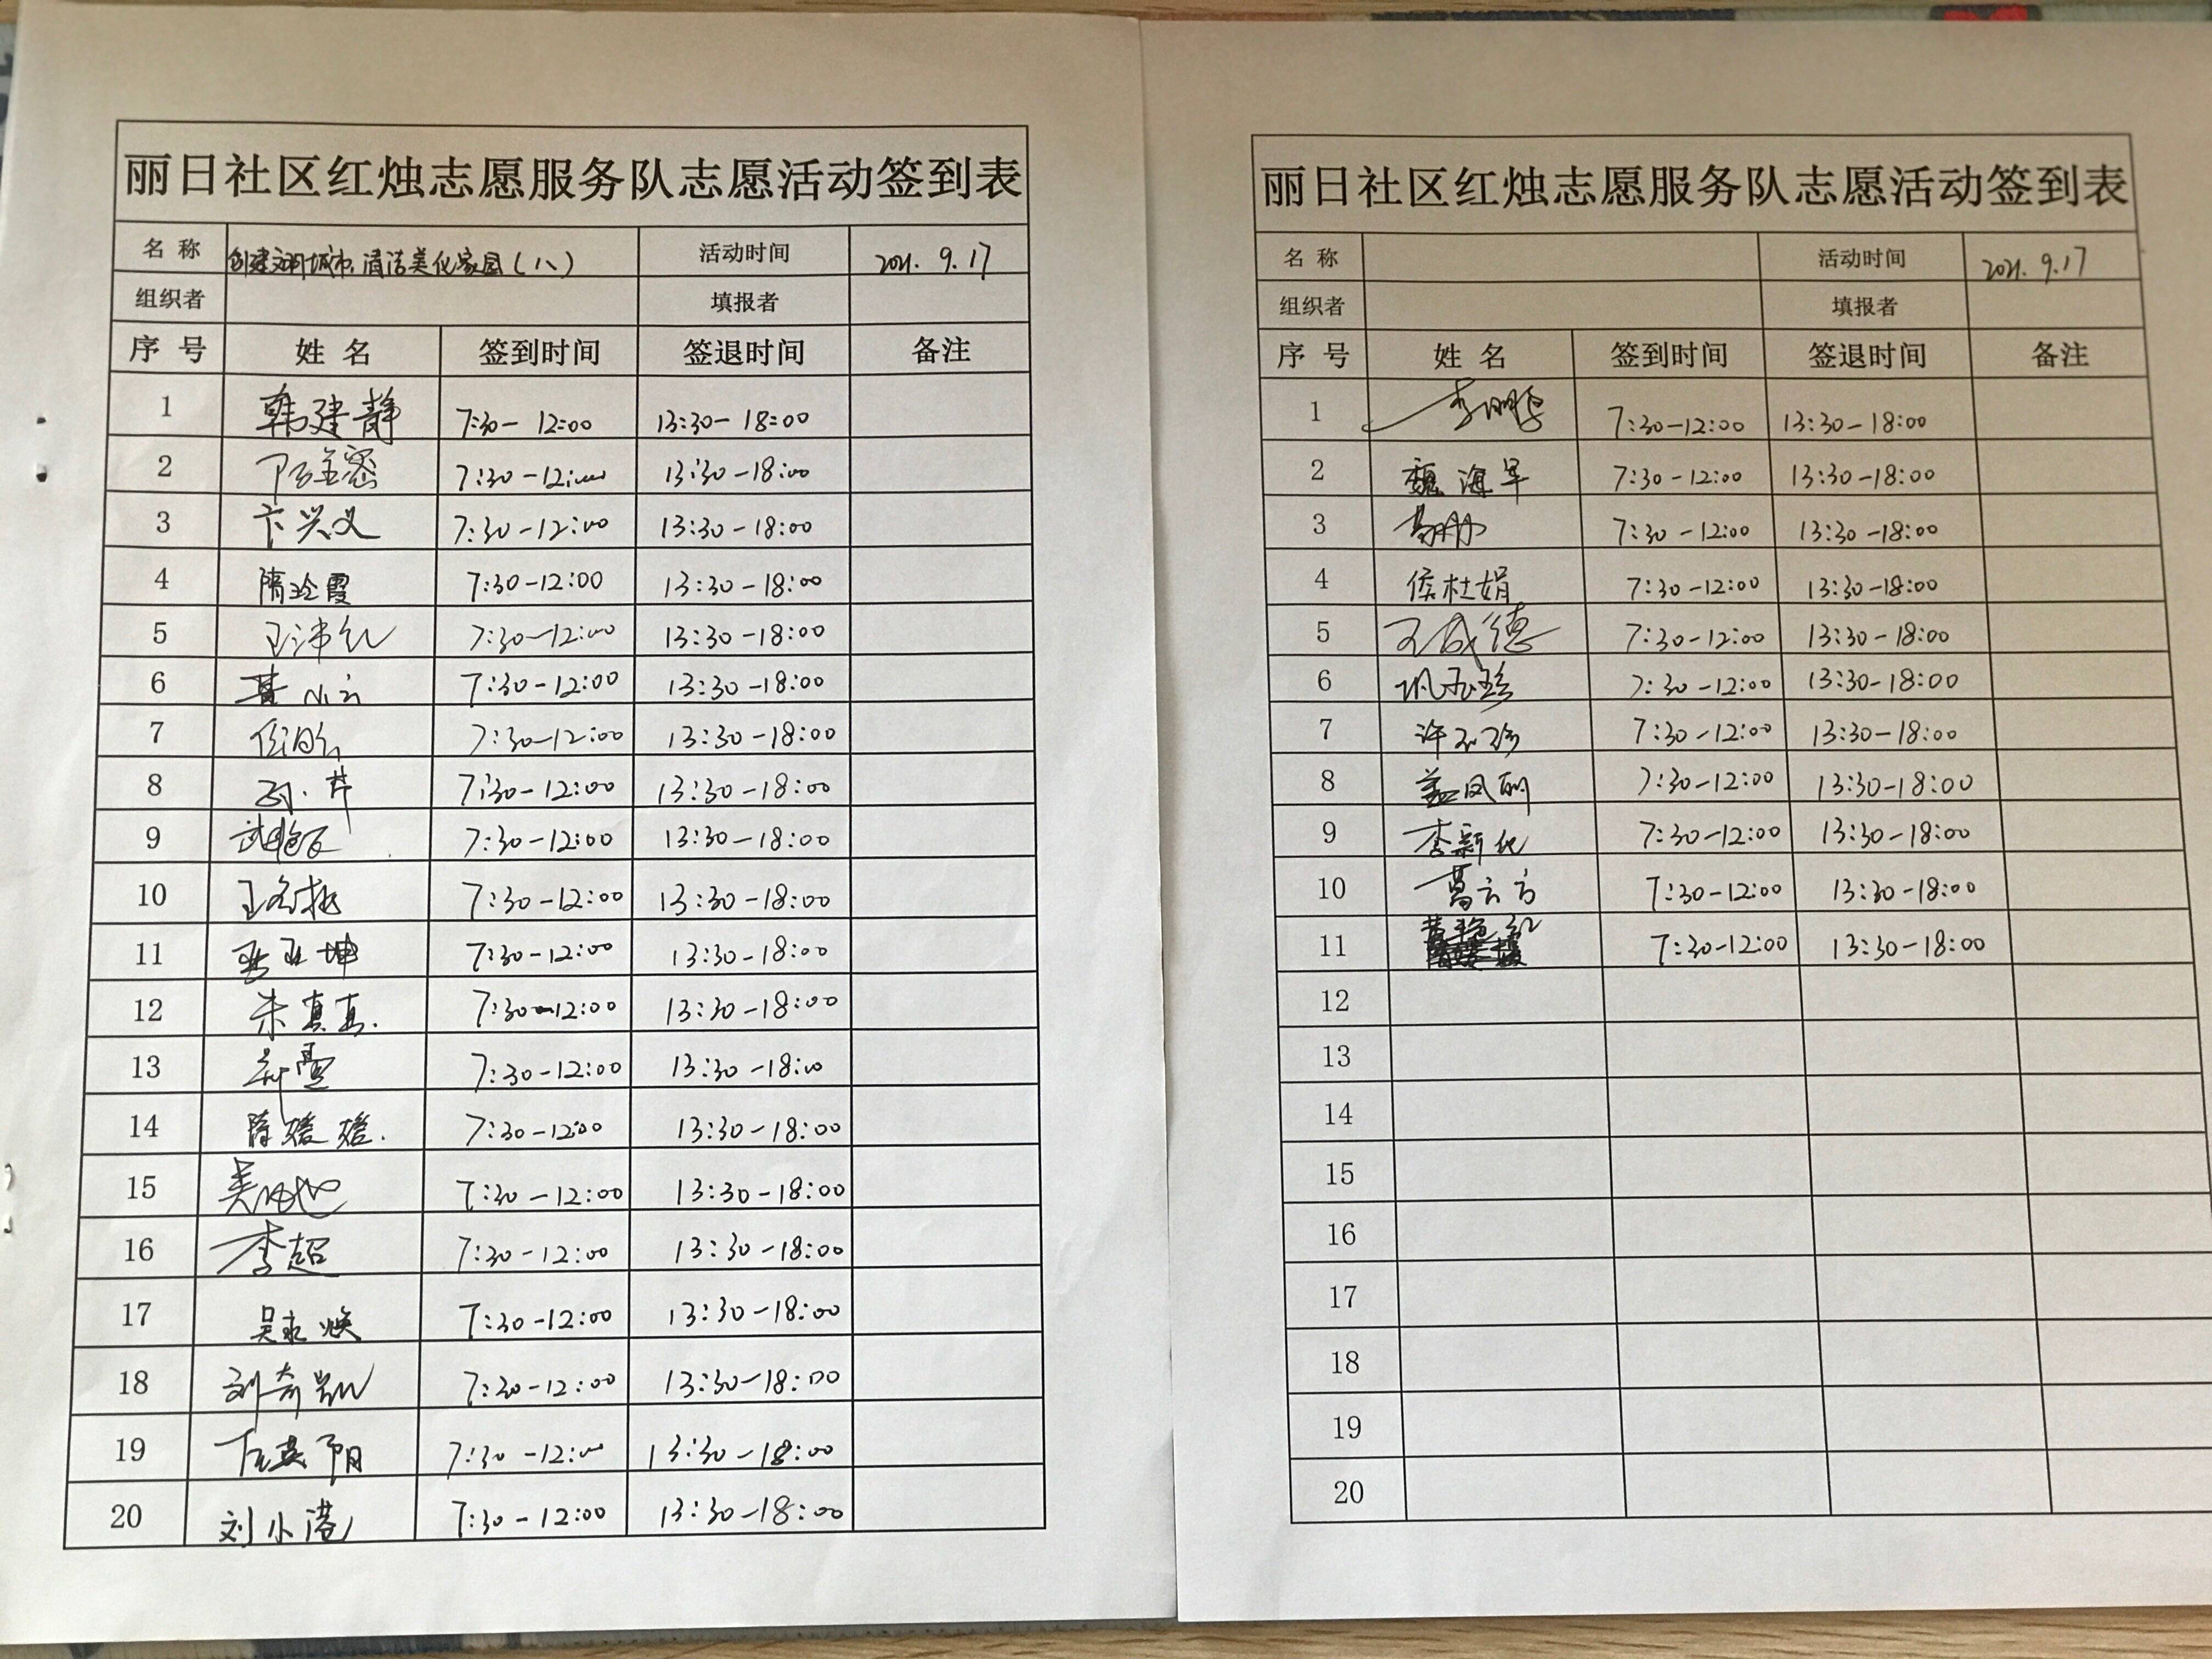 丽日社区红烛志愿服务队志愿活动签到表
名 称 创建文明城市,清洁美化家园(八) 活动时间 2021. 9.17
组织者 填报者
序 号 姓 名 签到时间 签退时间 备注
1 韩建静 7:30- 12:00 13:30- 18:00
2 7:30-12:00 13:30-18:00
3 卞兴义 7:30-12:00 13:30-18:00
4 隋玲霞 7:30-12:00 13:30-18:00
5 7:30-12:00 13:30-18:00
6 7:30-12:00 13:30-18:00
7 7:30-12:00 13:30-18:00
8 7:30-12:00 13:30-18:00
9 7:30-12:00 13:30-18:00
10 7:30-12:00 13:30-18:00
11 7:30-12:00 13:30-18:00
12 朱真真. 7:30-12:00 13:30-18:00
13 7:30-12:00 13:30-18:00
14 7:30-12:00 13:30-18:00
15 7:30-12:00 13:30-18:00
16 李超 7:30-12:00 13:30-18:00
17 吴永焕 7:30-12:00 13:30-18:00
18 7:30-12:00 13:30-18:00
19 7:30-12:00 13:30-18:00
20 刘小港 7:30-12:00 13:30-18:00
丽日社区红烛志愿服务队志愿活动签到表
名 称 活动时间 2021. 9.17
组织者 填报者
序 号 姓 名 签到时间 签退时间 备注
1 7:30-12:00 13:30-18:00
2 魏海军 7:30-12:00 13:30-18:00
3 7:30-12:00 13:30-18:00
4 侯杜娟 7:30-12:00 13:30-18:00
5 王成德 7:30-12:00 13:30-18:00
6 巩玉珍 7:30-12:00 13:30-18:00
7 7:30-12:00 13:30-18:00
8 盖凤丽 7:30-12:00 13:30-18:00
9 李新化 7:30-12:00 13:30-18:00
10 葛云方 7:30-12:00 13:30-18:00
11 7:30-12:00 13:30-18:00
12
13
14
15
16
17
18
19
20